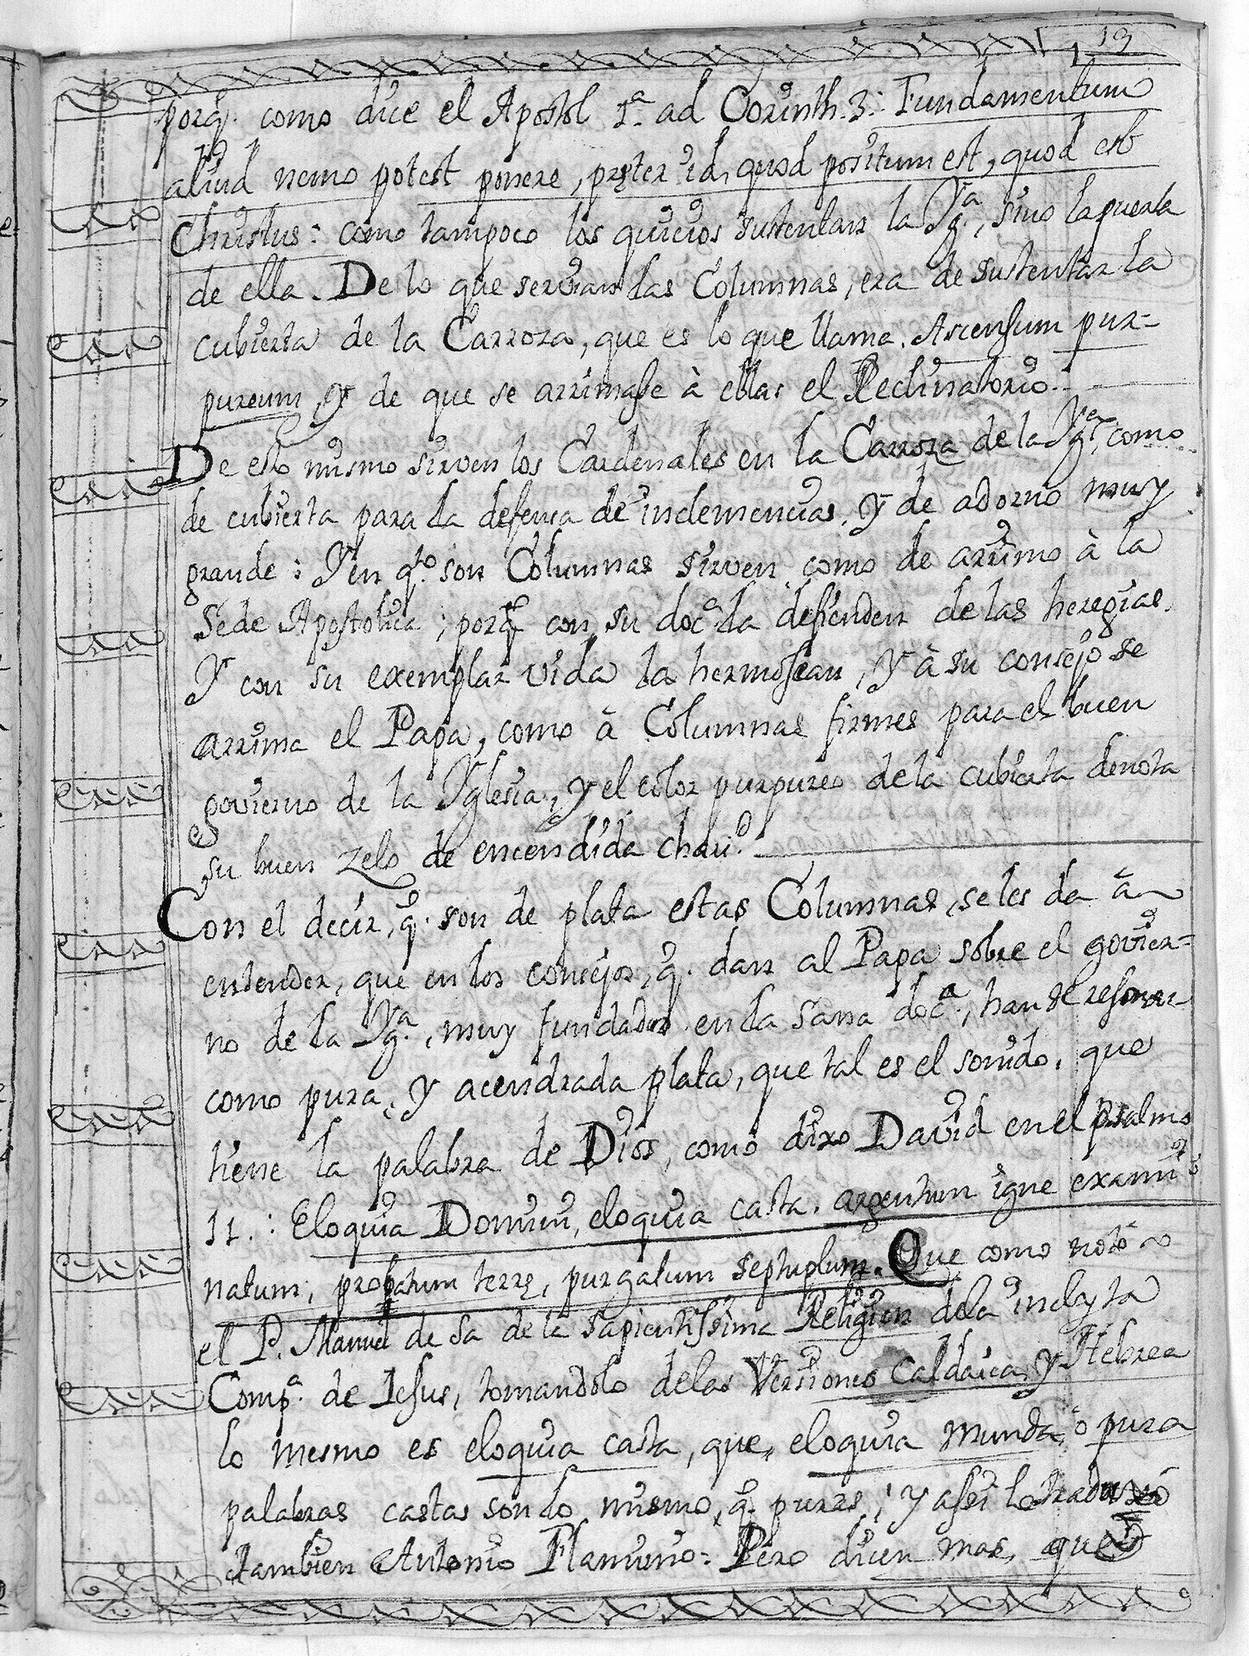 13
porq̃. como dice el Apostol 1.ª ad Corinth. 3: Fundamentum
aliud nemo potest ponere, pręter id, quod positum est, quod est
Christus: como tampoco los quicios sustentan la Yg.ª, sino la puerta
de ella. De lo que servian las Columnas, era de sustentar la
cubierta de la Carroza, que es lo que llama. Ascensum pur-
pureum, y de que se arrimasse à ellas el Reclinatorio.
De esto mismo sirven los Cardenales en la Carroza de la Yg.ª, como
de cubierta para la defensa de inclemencias, Y de adorno muy
grande: Y en q.to son Columnas sirven como de arrimo à la
Sede Apostolica; porq̃ con su doc.ª la defienden de las heregias.
Y con su exemplar vida la hermosean, Y à su consejo se
arrima el Papa, como à Columnas firmes para el buen
govierno de la Yglesia, Y el color purpureo de la cubierta denota
su buen zelo de encendida chari.d
Con el decir, q̃. son de plata estas Columnas, se les da à
entender, que en los consejos, q̃. dan al Papa sobre el govier-
no de la Yg.ª, muy fundados en la sana doc.ª, han de resonar
como pura, Y acendrada plata, que tal es el sonido, que
tiene la palabra de Dios, como dixo David en el psalmo
11.: Eloquia Domini, eloquia casta, argentum igne exami
natum, probatum terrę, purgatum septuplum. Que como notò
el P. Manuel de Sa de la sapientissima Religion de la inclyta
Comp.ª de Iesus, tomandolo de las Versiones Caldaica, Y Hebrea
lo mesmo es eloquia casta, que, eloquia munda, ò pura
palabras castas son lo mismo, q̃. puras; y assi lo traduxo
tambien Antonio Flaminio: Pero dicen mas, que